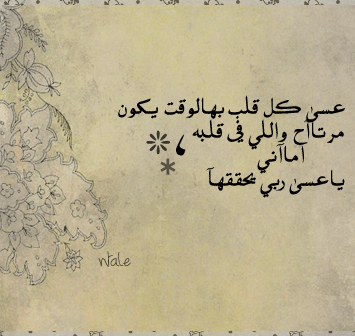 عسىٰ كل قلب بهالوقت يكون
مرتاآح واللي في قلبه ،
اماآني
ياعسىٰ ربي يحققهآ
ɴtale